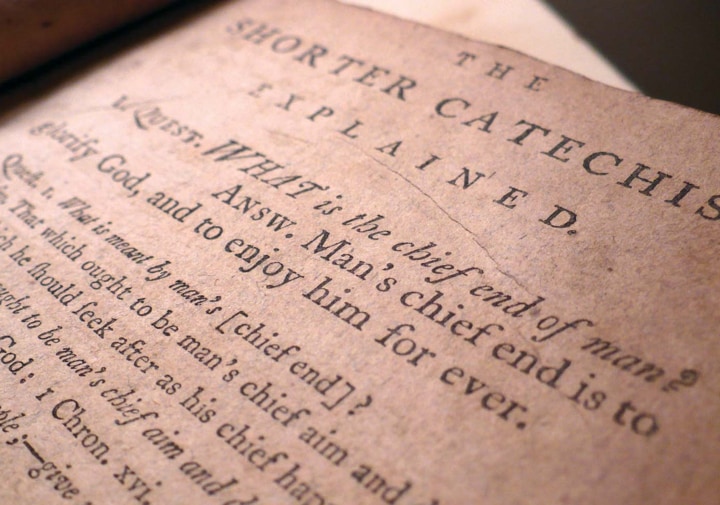 THE
SHORTER CATECHIS
EXPLAINED.
1. QUEST. WHAT is the chief end of man?
ANSW. Man's chief end is to
glorify God, and to enjoy him for ever.
Quest. 1. What is meant by man's [chief end]?
That which ought to be man's chief aim and
he ſhould ſeek after as his chief
ought to be man's chief aim and
God: 1 Chron. xvi.
;—give